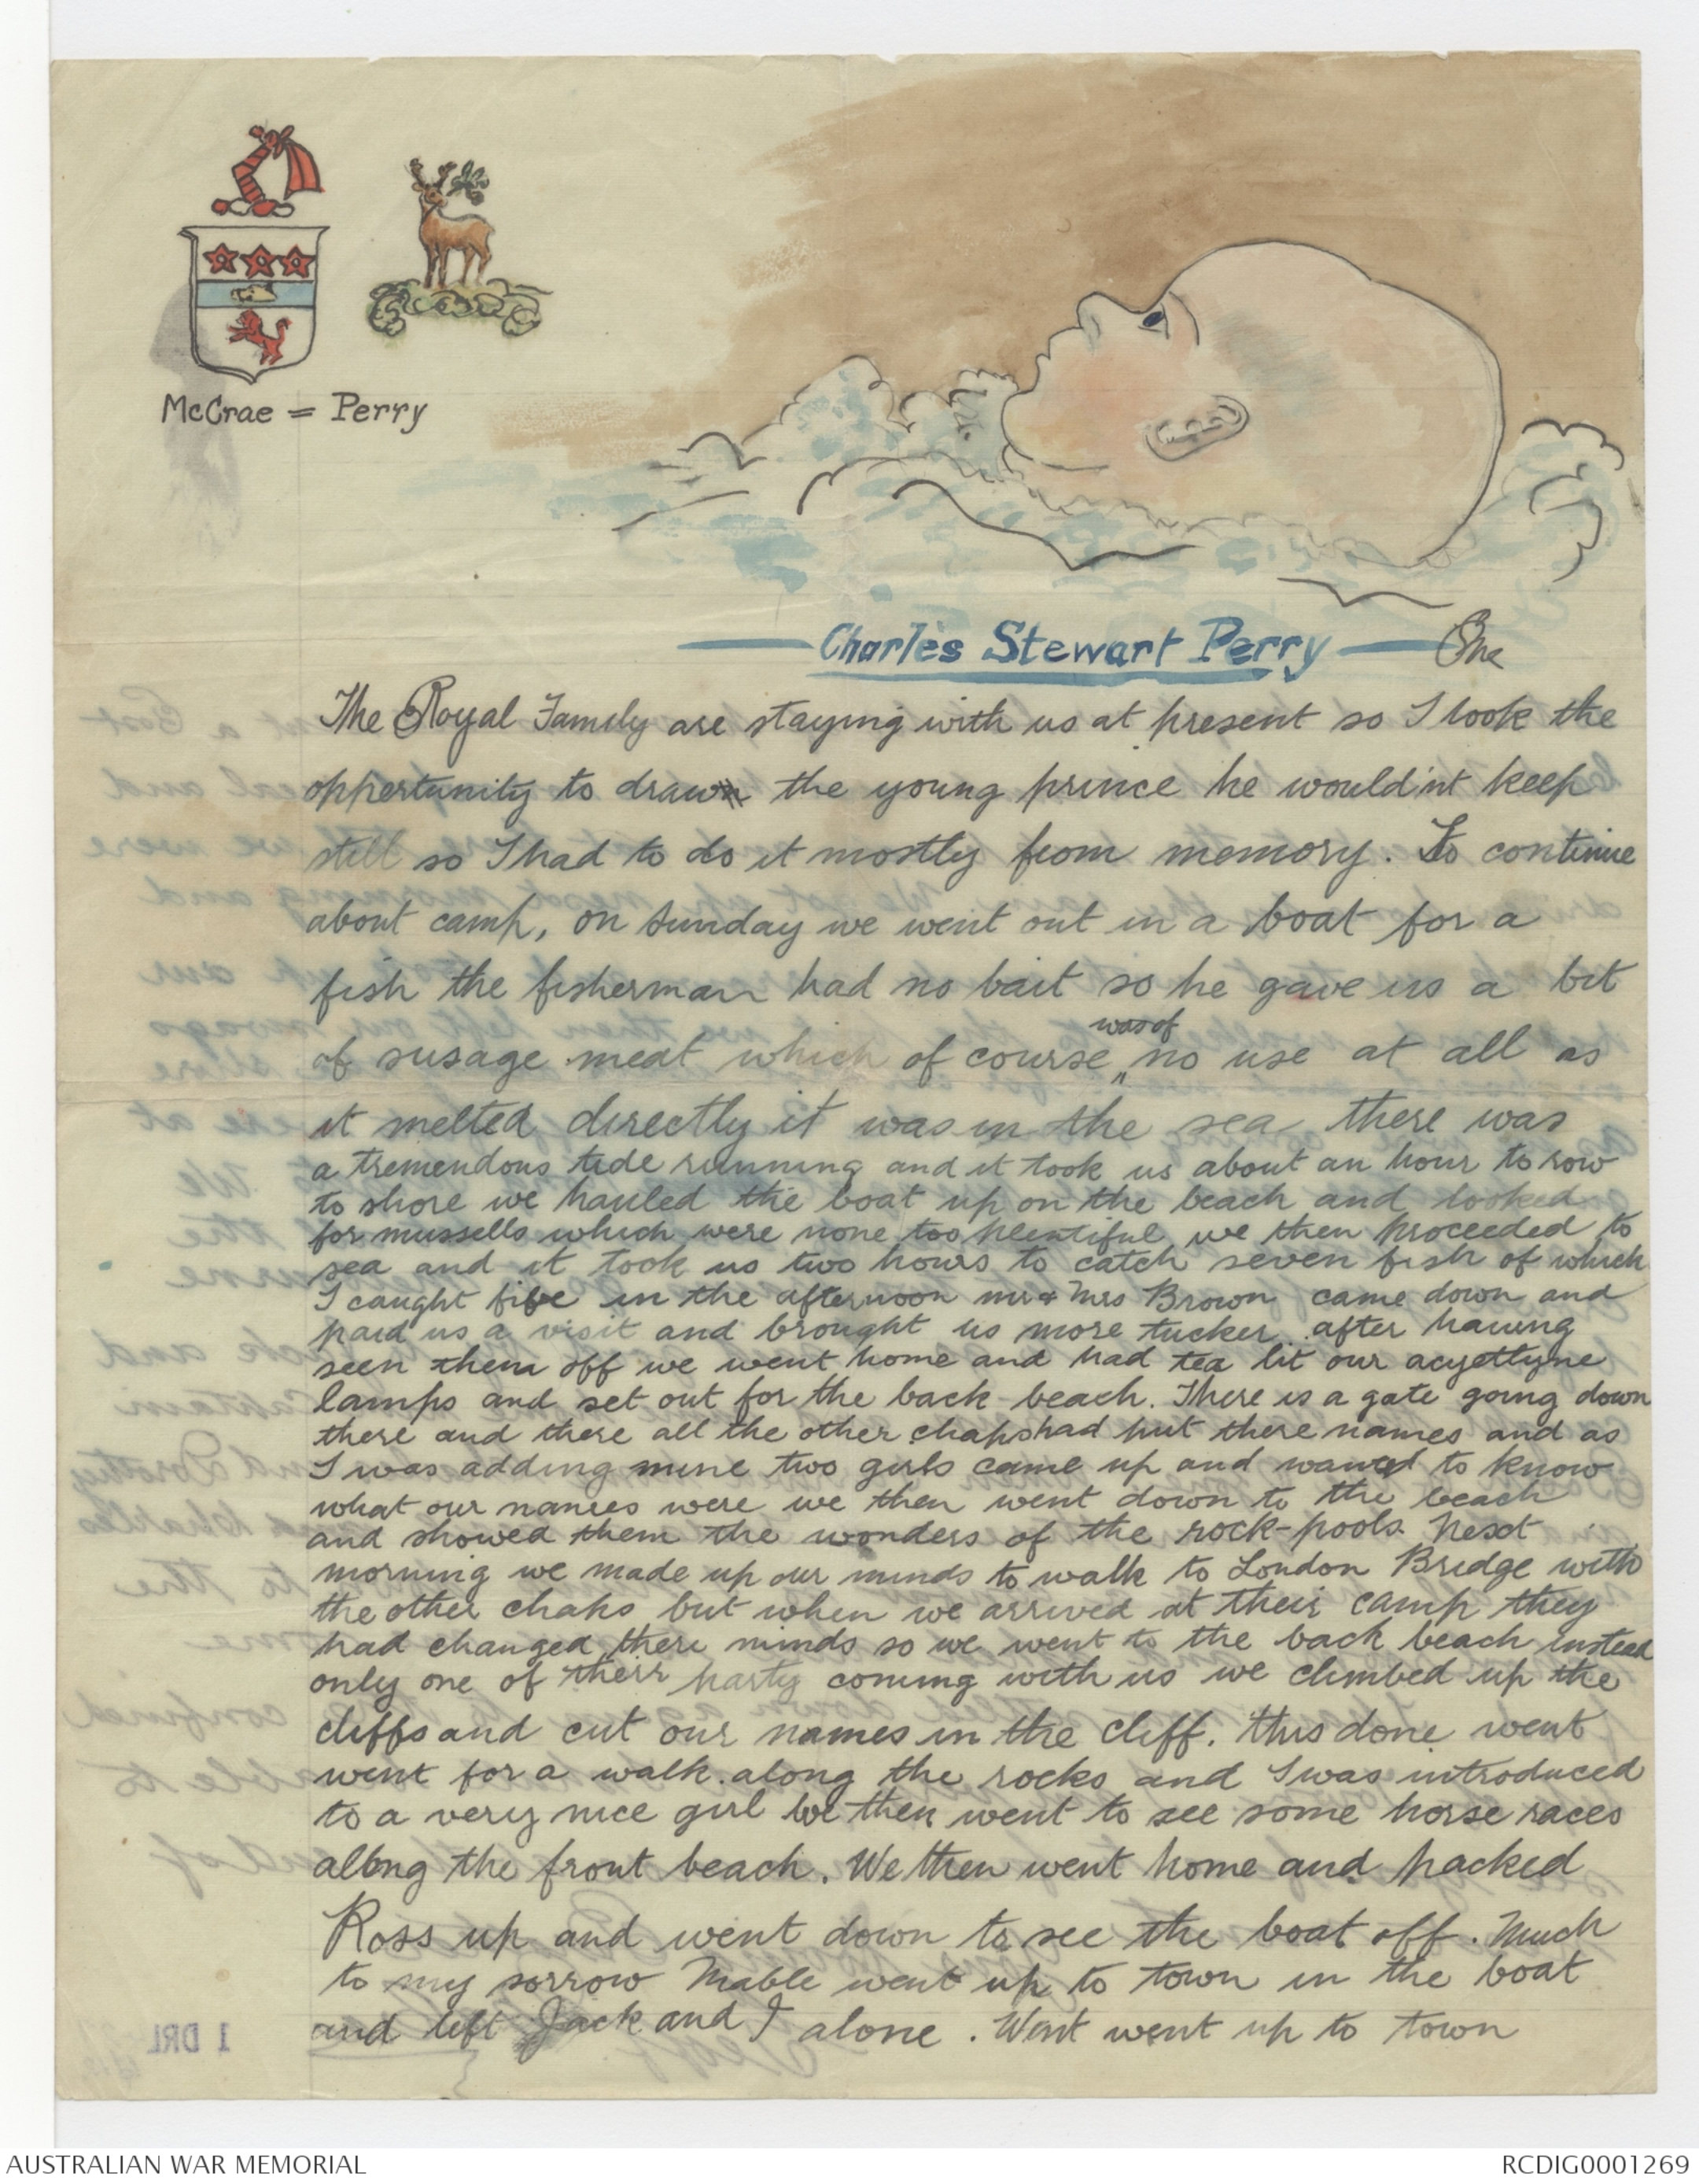 McCrae = Perry
Charles Stewart Perry
One
The Royal Family are staying with us at present so I took the
oppertunity to draw the young prince he would'nt keep
still so I had to do it mostly from memory. To continue
about camp, on Sunday we went out in a boat for a
fish the fisherman had no bait so he gave us a bit
of susage meat which of course was of no use at all as
it melted directly it was in the sea there was
a tremendous tide running and it took us about an hour to row
to shore we hauled the boat up on the beach and looked
for mussells which were none too plentiful we then proceeded to
sea and it took us two hours to catch seven fish of which
I caught five in the afternoon mr & Mrs Brown came down and
paid us a visit and brought us more tucker. after having
seen them off we went home and had tea lit our acyettyne
lamps and set out for the back-beach. There is a gate going down
there and there all the other chaps had put there names and as
I was adding mine two girls came up and wanted to know
what our names were we then went down to the beach
and showed them the wonders of the rock-pools. Next
morning we made up our minds to walk to London Bridge with
the other chaps but when we arrived at their camp they
had changed there minds so we went to the back beach instead
only one of their party coming with us we climbed up the
cliffs and cut our names in the cliff. this done went
went for a walk along the rocks and I was introduced
to a very nice girl We then went to see some horse races
along the front beach. We then went home and packed
Ross up and went down to see the boat off. Much
to my sorrow Mable went up to town in the boat
and left Jack and I alone. Went went up to town
1 DRL
AUSTRALIAN WAR MEMORIAL
RCDIG0001269